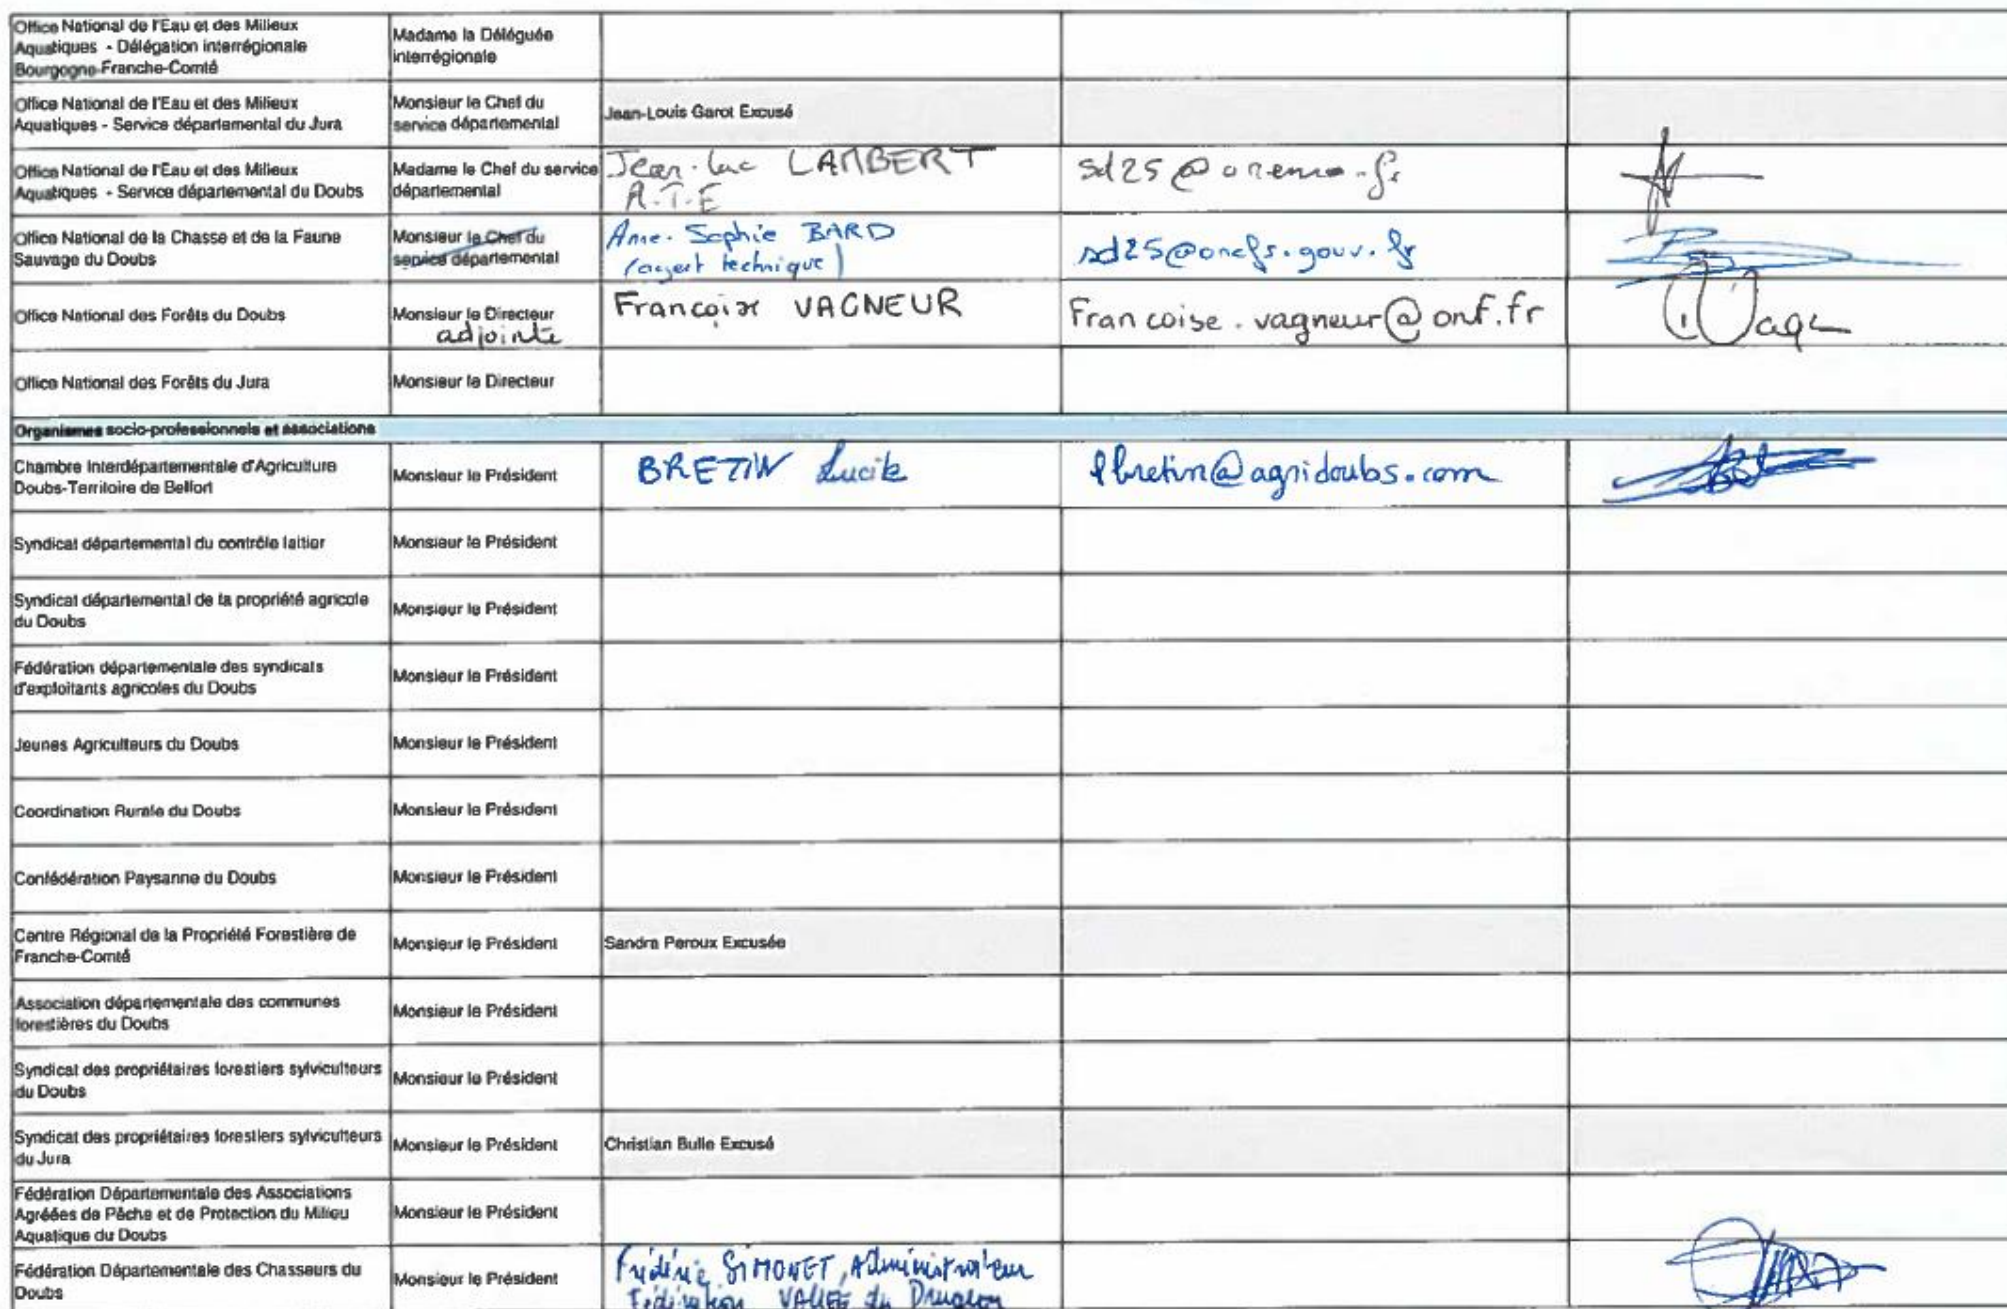 Office National de l'Eau et des Milieux
Aquatiques - Délégation interrégionale
Bourgogne-Franche-Comté
Madame la Déléguée
interrégionale
Office National de l'Eau et des Milieux
Aquatiques - Service départemental du Jura
Monsieur le Chef du
service départemental
Jean-Louis Garot Excusé
Office National de l'Eau et des Milieux
Aquatiques - Service départemental du Doubs
Madame le Chef du service
départemental
Jean-Luc LAMBERT
A.T.E
sd25@onema.fr
Office National de la Chasse et de la Faune
Sauvage du Doubs
Monsieur le Chef du
service départemental
Anne-Sophie BARD
(agent technique)
sd25@oncfs.gouv.fr
Office National des Forêts du Doubs
Monsieur le Directeur
adjointe
Françoise VAGNEUR
Francoise.vagneur@onf.fr
Office National des Forêts du Jura
Monsieur le Directeur
Organismes socio-professionnels et associations
Chambre Interdépartementale d'Agriculture
Doubs-Territoire de Belfort
Monsieur le Président
BRETIN Lucile
lbretin@agridoubs.com
Syndicat départemental du contrôle laitier
Monsieur le Président
Syndicat départemental de la propriété agricole
du Doubs
Monsieur le Président
Fédération départementale des syndicats
d'exploitants agricoles du Doubs
Monsieur le Président
Jeunes Agriculteurs du Doubs
Monsieur le Président
Coordination Rurale du Doubs
Monsieur le Président
Confédération Paysanne du Doubs
Monsieur le Président
Centre Régional de la Propriété Forestière de
Franche-Comté
Monsieur le Président
Sandra Peroux Excusée
Association départementale des communes
forestières du Doubs
Monsieur le Président
Syndicat des propriétaires forestiers sylviculteurs
du Doubs
Monsieur le Président
Syndicat des propriétaires forestiers sylviculteurs
du Jura
Monsieur le Président
Christian Bulle Excusé
Fédération Départementale des Associations
Agréées de Pêche et de Protection du Milieu
Aquatique du Doubs
Monsieur le Président
Fédération Départementale des Chasseurs du
Doubs
Monsieur le Président
Frédéric SIMONET, Administrateur
Fédération VALLÉE du Drugeon